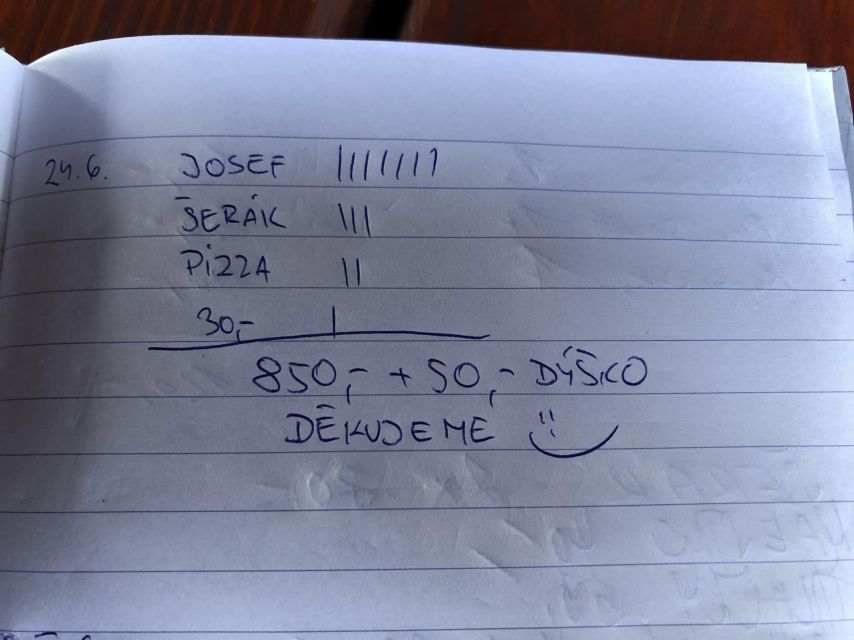 24.6. JOSEF ||||||||
ŠERÁK |||
PIZZA ||
30,- |
850,- + 50,- DÝŠKO
DĚKUJEME